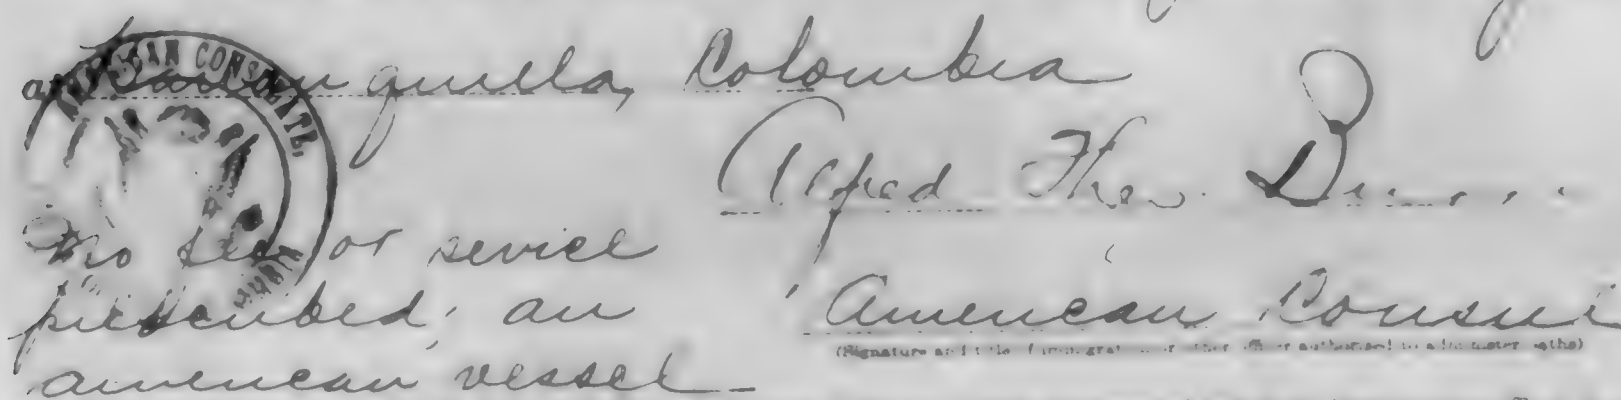 at Barranquilla, Colombia
AMERICAN CONSULATE,
Alfred Theo. Burri
No fee or service
prescribed; an
American vessel
American Consul
(Signature and title of immigrant or other officer authorized to administer oaths)